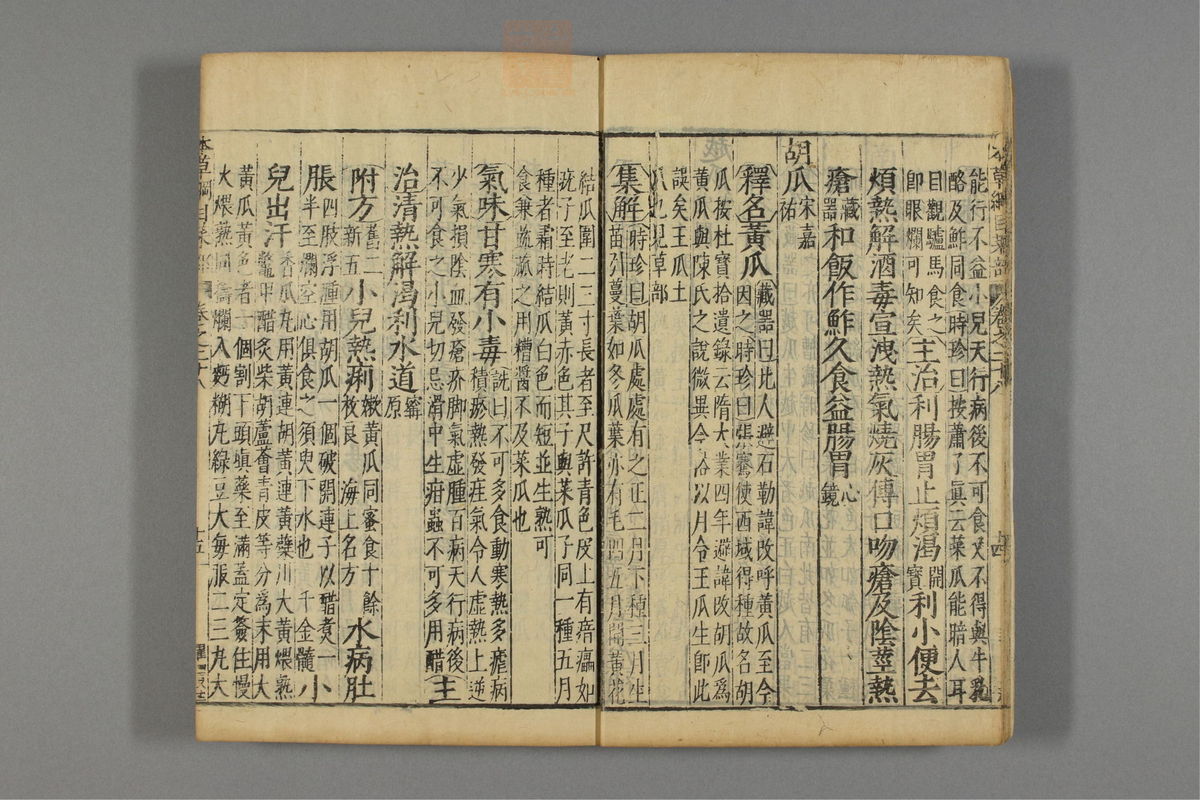 本草綱目菜部 卷之二十八 十四
能行不益小兒天行病後不可食又不得與牛乳
酪及鮓同食時珍曰按蕭了眞云菜瓜能暗人耳
目觀驢馬食之
即眼爛可知矣
主治利腸胃止煩渴開寶利小便去
煩熱解酒毒宣洩熱氣燒灰傅口吻瘡及陰莖熱
瘡藏器和飯作鮓久食益腸胃心鏡
胡瓜宋嘉祐
釋名黃瓜
藏器曰北人避石勒諱改呼黃瓜至今
因之時珍曰張騫使西域得種故名胡
瓜按杜寶拾遺錄云隋大業四年避諱改胡瓜爲
黃瓜與陳氏之說微異今俗以月令王瓜生即此
誤矣王瓜土
瓜也見草部
集解
時珍曰胡瓜處處有之正二月下種三月生
苗引蔓葉如冬瓜葉亦有毛四五月開黃花
結瓜圍二三寸長者至尺許青色皮上有㾦㿔如
疣子至老則黃赤色其子與菜瓜子同一種五月
種者霜時結瓜白色而短並生熟可
食兼蔬蓏之用糟醬不及菜瓜也
氣味甘寒有小毒
詵曰不可多食動寒熱多瘧病
積瘀熱發疰氣令人虛熱上逆
少氣損陰血發瘡疥脚氣虛腫百病天行病後
不可食之小兒切忌滑中生疳蟲不可多用醋
主
治清熱解渴利水道寗原
附方舊二新五小兒熱痢嫩黃瓜同蜜食十餘枚良 海上名方水病肚
脹四肢浮腫用胡瓜一個破開連子以醋煮一
半至爛空心俱食之須臾下水也 千金髓
小
兒出汗
香瓜丸用黃連胡黃連黃蘗川大黃煨熟
鱉甲醋炙柴胡蘆薈青皮等分爲末用大
黃瓜黃色者一個割下頭塡藥至滿蓋定簽住慢
火煨熟同擣爛入麪糊丸綠豆大每服二三丸大